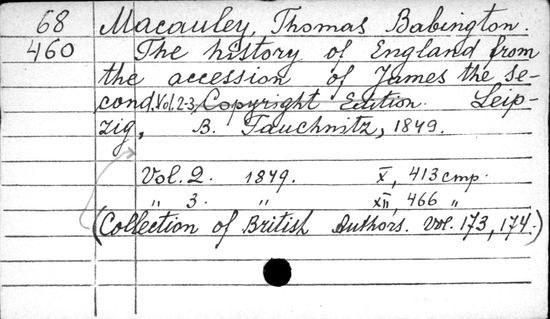 68 Macauley, Thomas Babington.
460 The history of England from
the accession of James the se-
cond. Vol. 2-3, Copyright Edition. Leip-
zig, B. Tauchnitz, 1849.
Vol. 2. 1849. X, 413 стр.
" 3. " XII, 466 "
(Collection of British Authors. Vol. 173, 174.)